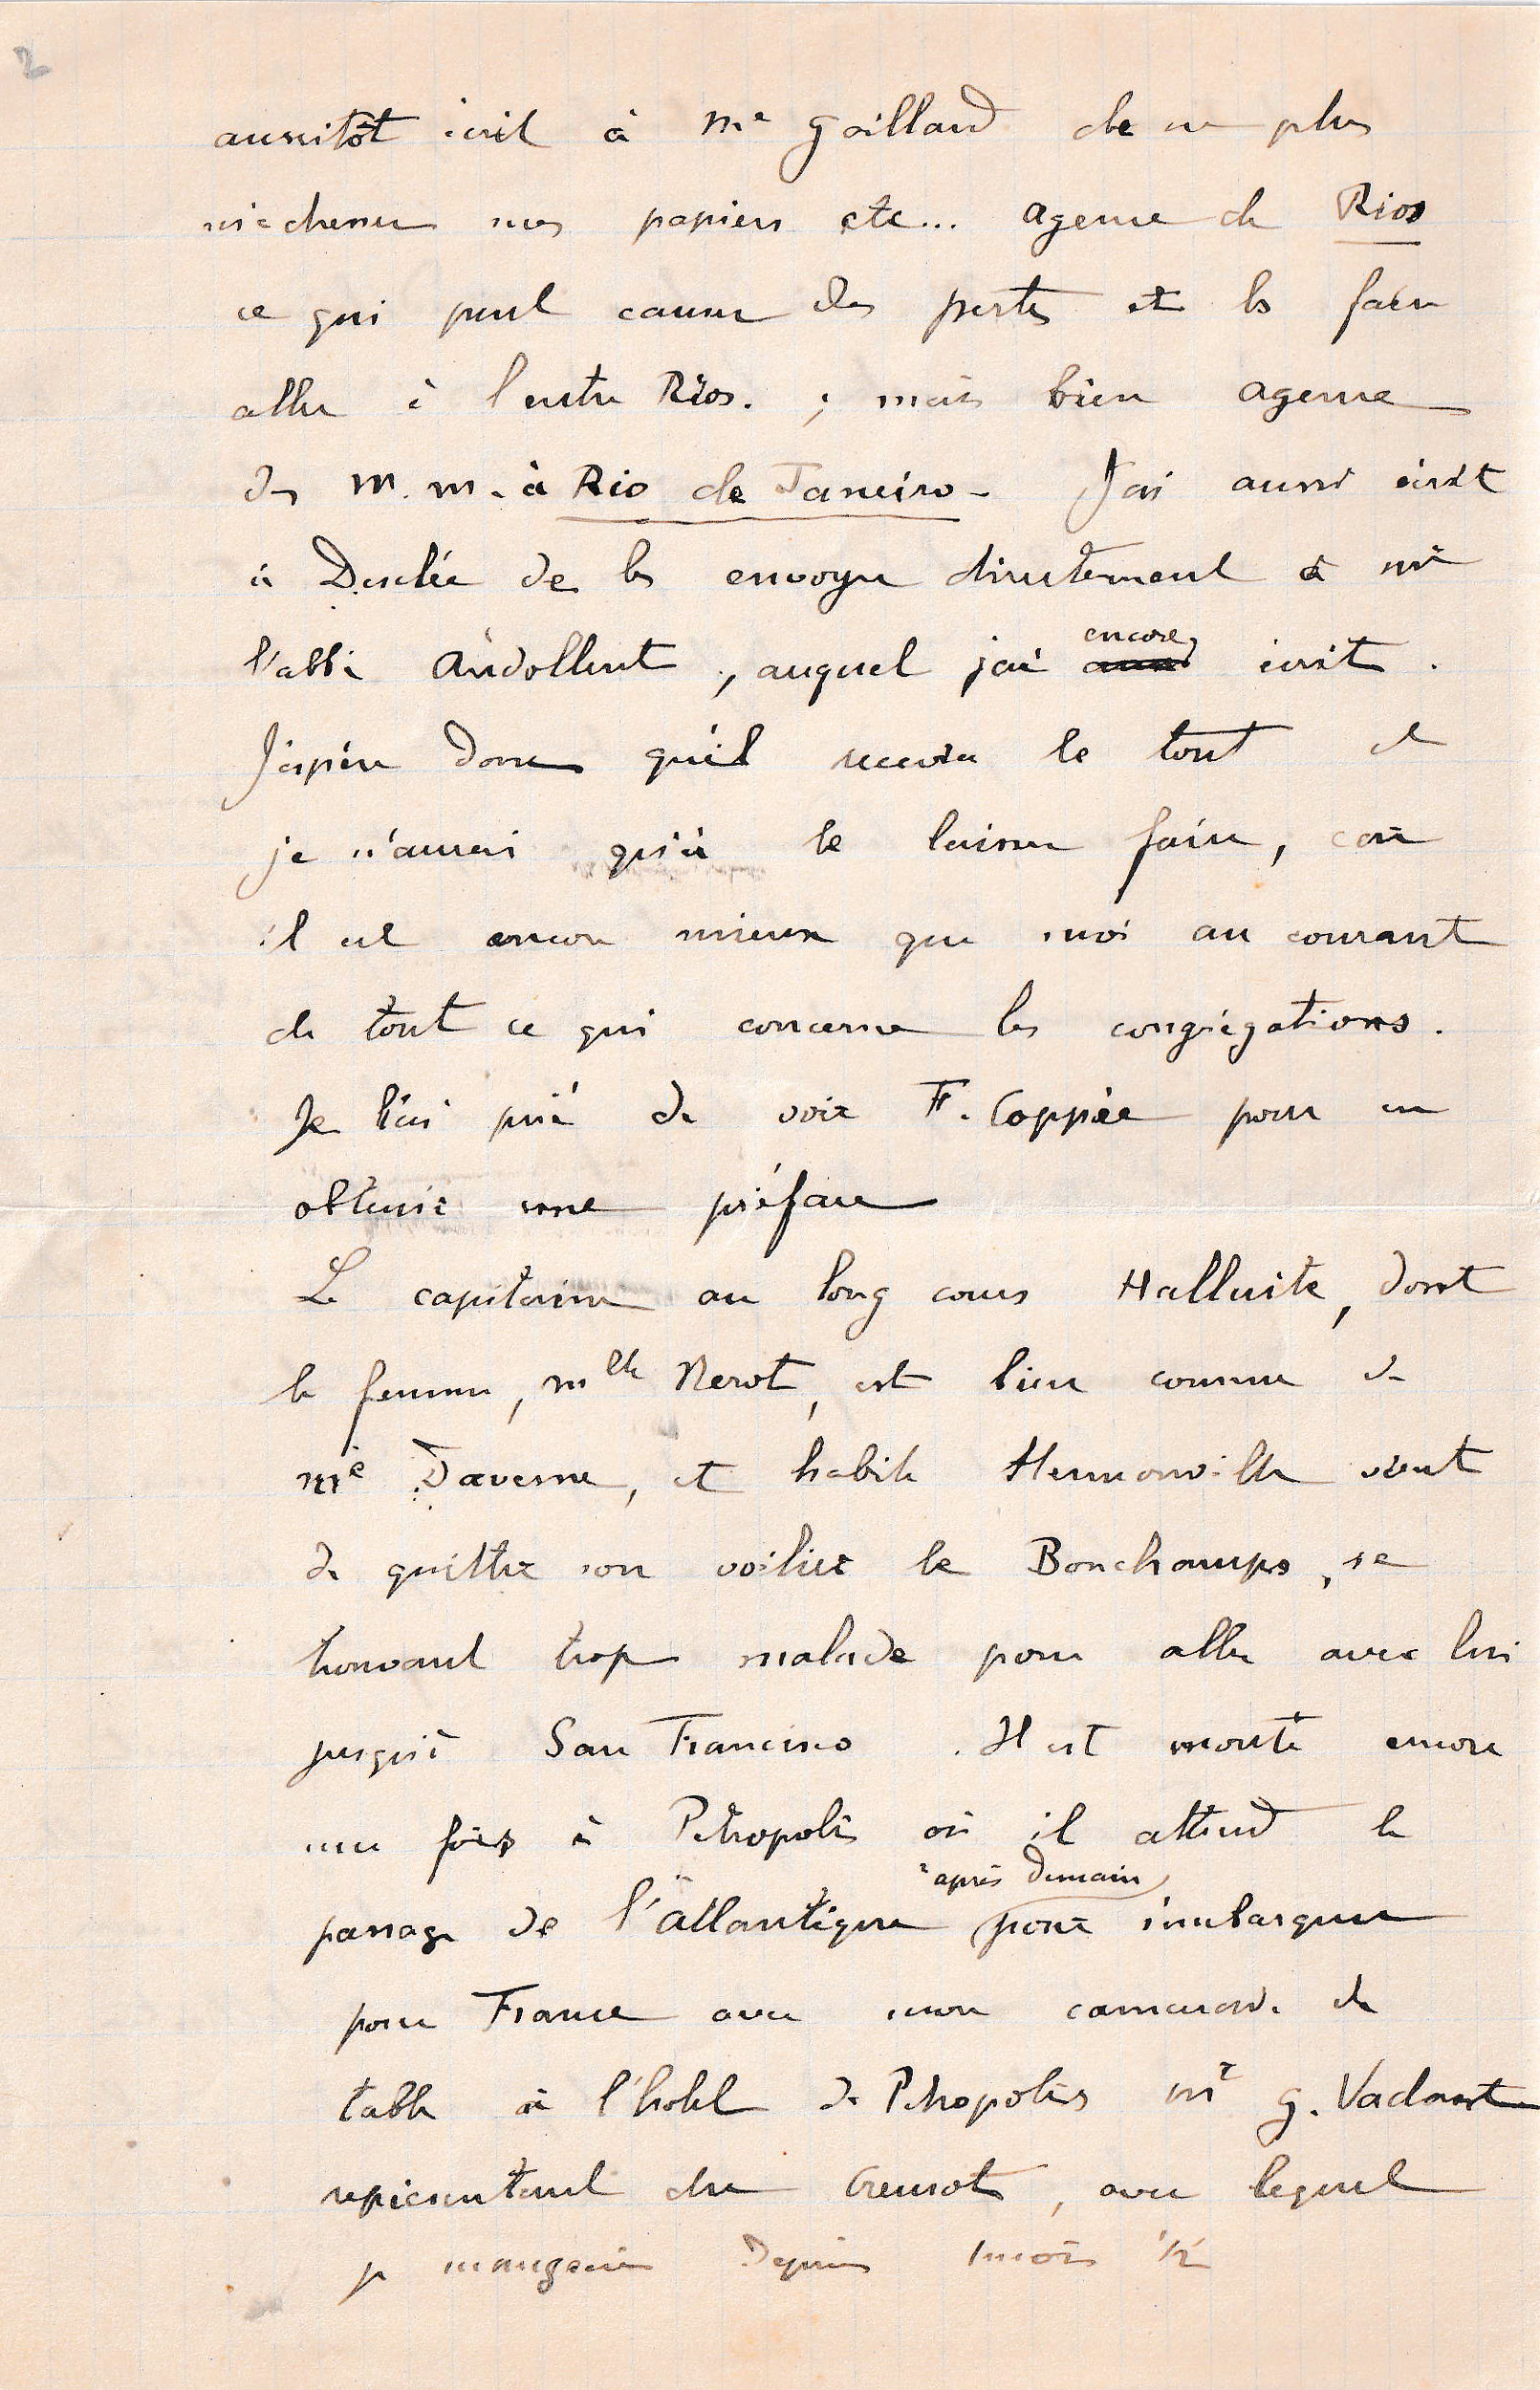 2
aussitôt écrit à Me Gaillard de ne plus
m'adresser mes papiers etc... agence de Rios
ce qui peut causer des pertes et les faire
aller à l'entre Rios. ; mais bien agence
des M. M. à Rio de Janeiro - J'ai aussi écrit
à Desclée de les envoyer directement à Mr
l'abbé Audollent, auquel j'ai encore écrit.
J'espère donc qu'il recevra le tout et
je n'aurai qu'à le laisser faire, car
il est encore mieux que moi au courant
de tout ce qui concerne les congrégations.
Je l'ai prié de voir F. Coppée pour en
obtenir une préface
Le capitaine au long cours Halluite, dont
la femme, Mlle Nerot, est bien connue de
Me Taverne, et habite Hermonville vient
de quitter son voilier le Bonchamps, se
trouvant trop malade pour aller avec lui
jusqu'à San Francisco. Il est monté encore
une fois à Pétropolis où il attend le
passage de l'Atlantique après demain pour s'embarquer
pour France avec mon camarade de
table à l'hôtel de Pétropolis Mr G.
représentant du Creusot, avec lequel
je mangeais depuis 1 mois 1/2